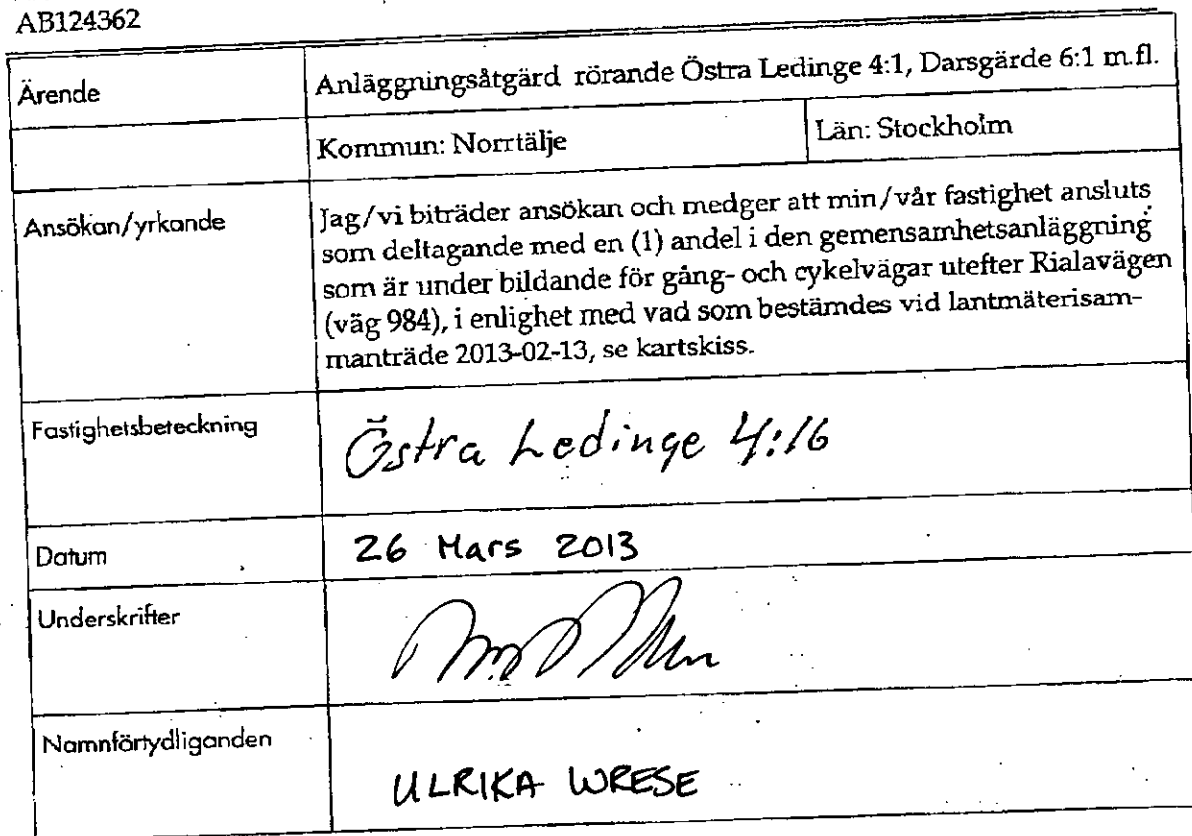 AB124362
Ärende
Anläggningsåtgärd rörande Östra Ledinge 4:1, Darsgärde 6:1 m.fl.
Kommun: Norrtälje
Län: Stockholm
Ansökan/yrkande
Jag/vi biträder ansökan och medger att min/vår fastighet ansluts
som deltagande med en (1) andel i den gemensamhetsanläggning
som är under bildande för gång- och cykelvägar utefter Rialavägen
(väg 984), i enlighet med vad som bestämdes vid lantmäterisam-
manträde 2013-02-13, se kartskiss.
Fastighetsbeteckning
Östra Ledinge 4:16
Datum
26 Mars 2013
Underskrifter
Namnförtydliganden
ULRIKA WRESE